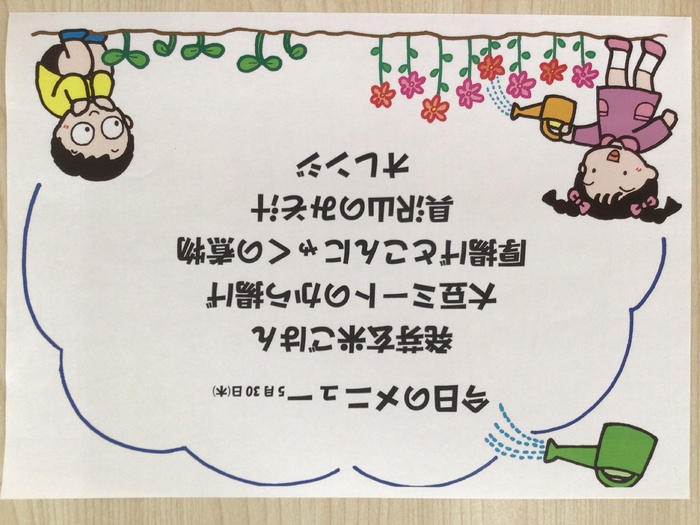 今日のメニュー 5月30日(木)
発芽玄米ごはん
大豆ミートのから揚げ
厚揚げとこんにゃくの煮物
具沢山のみそ汁
オレンジ